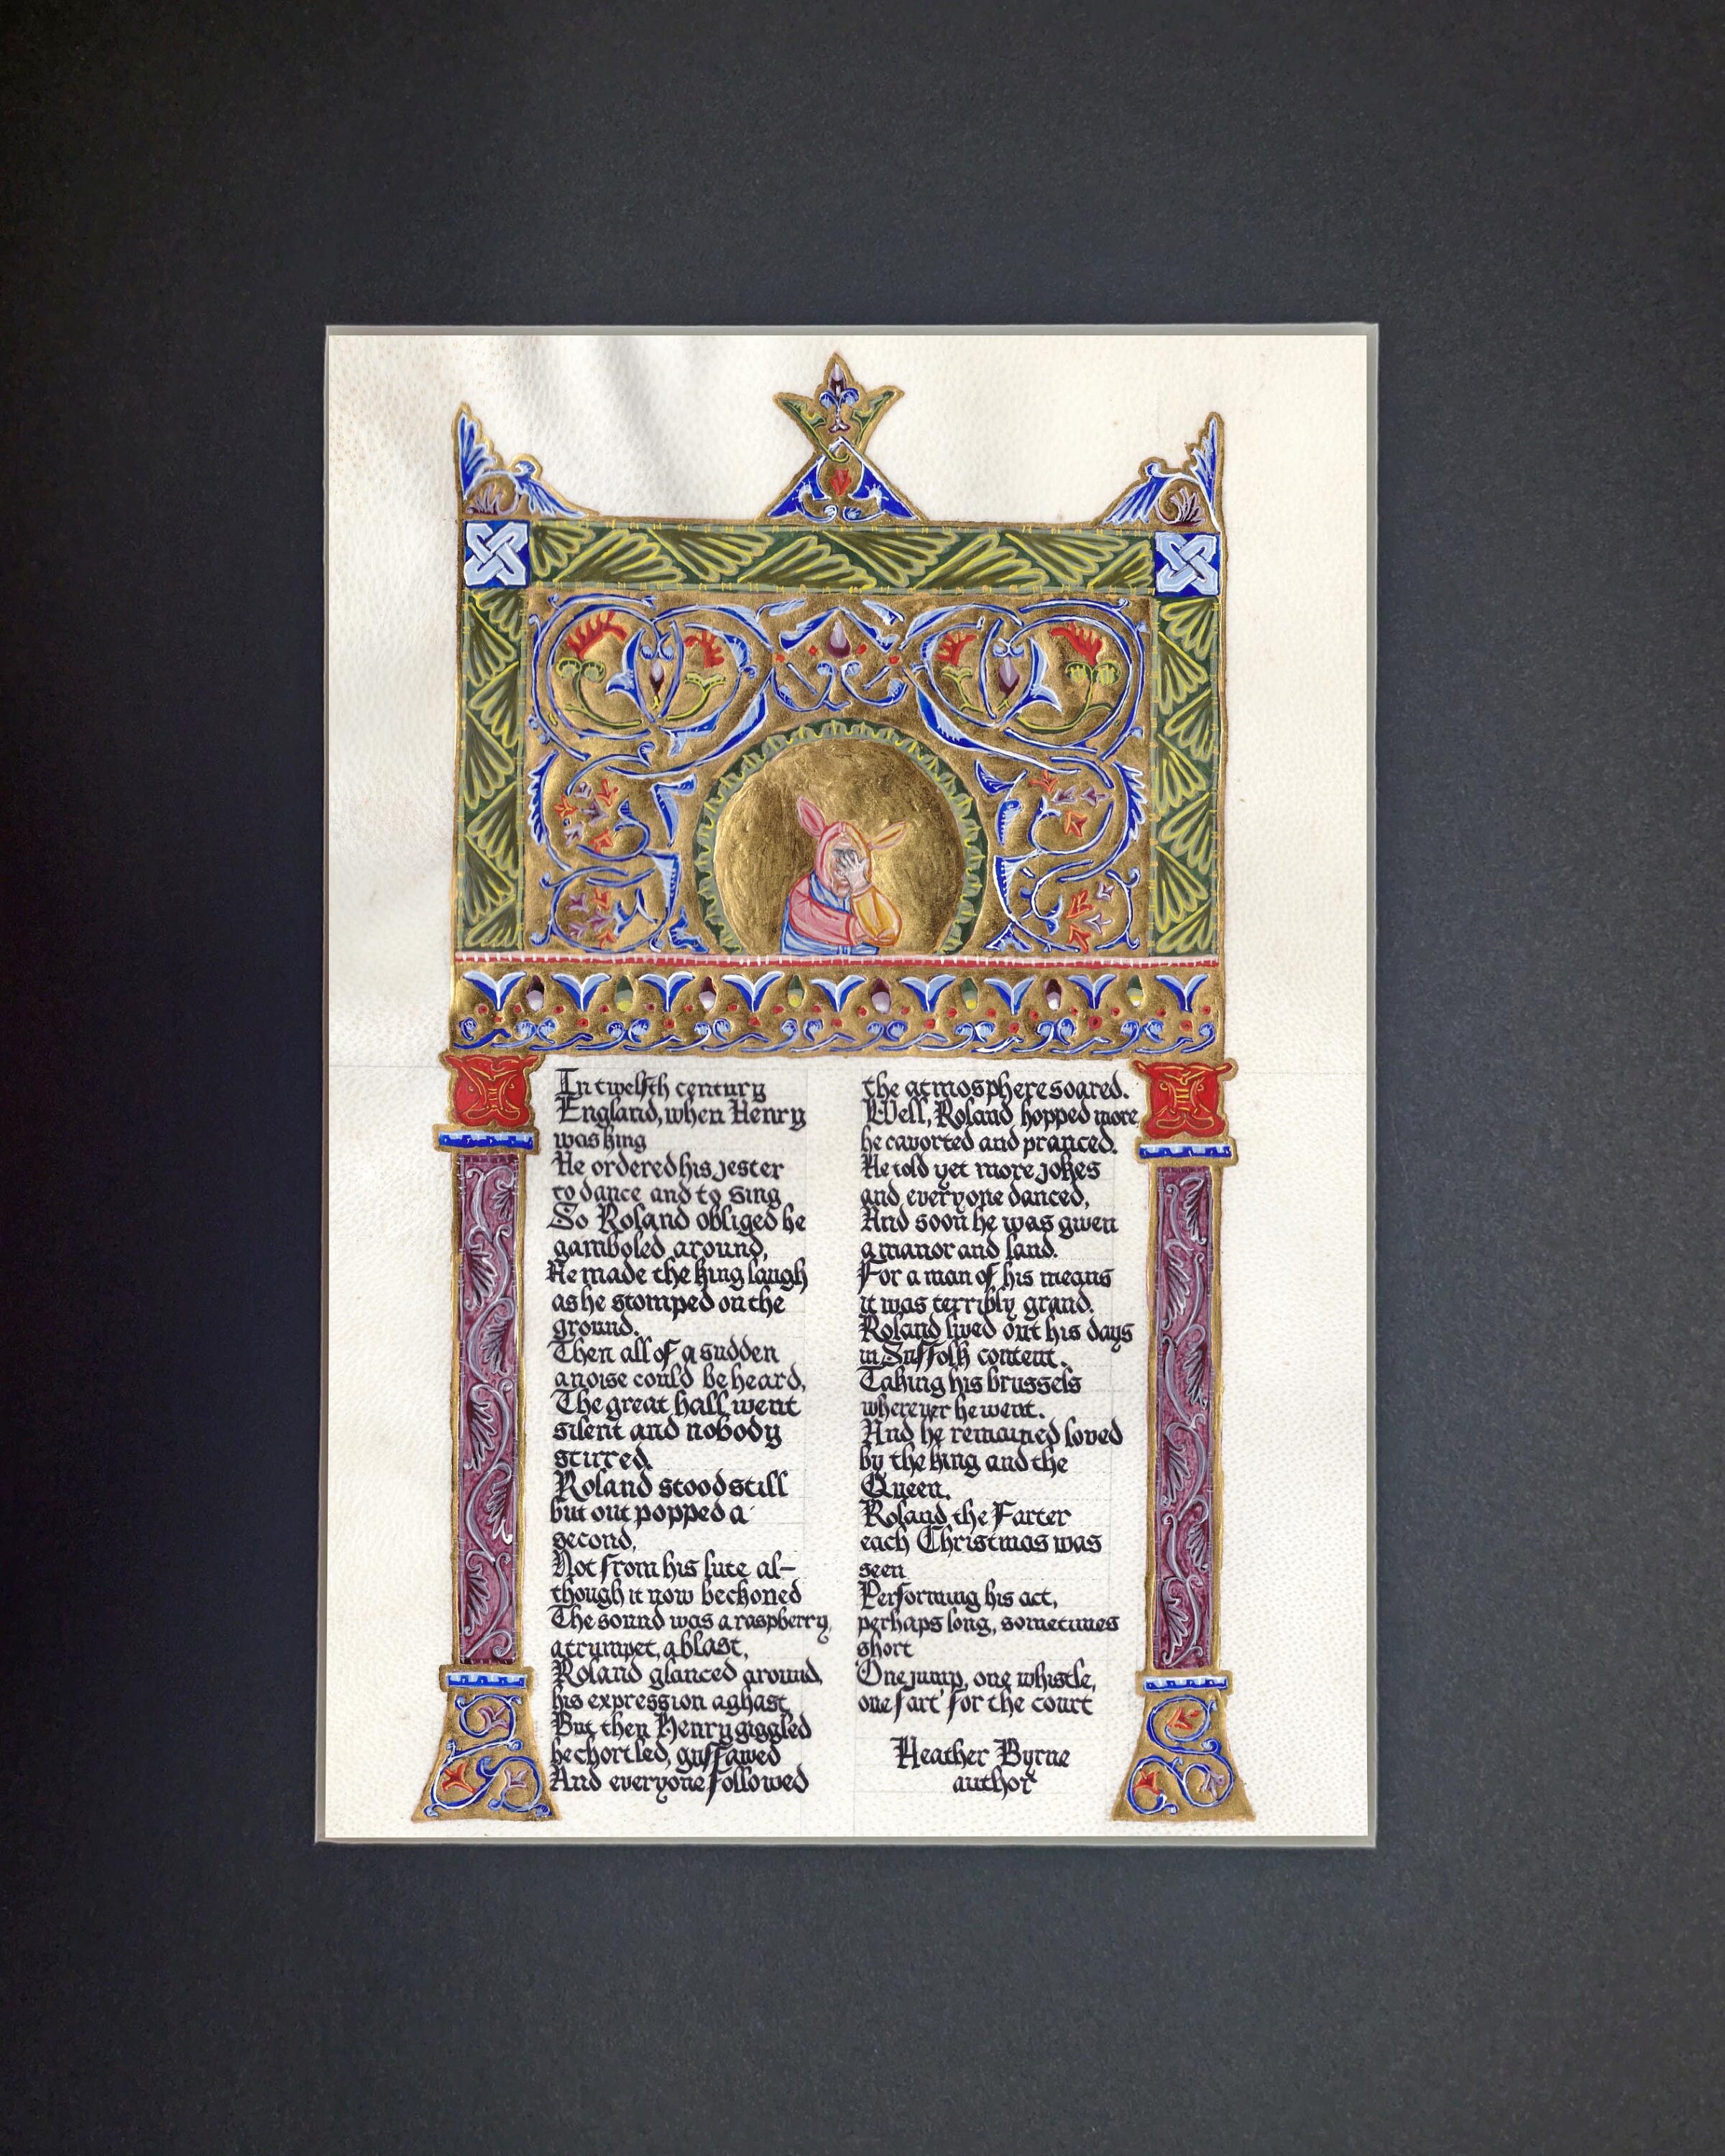 In twelfth century
England, when Henry
was king
He ordered his jester
to dance and to sing
So Roland obliged he
gamboled around,
He made the king laugh
as he stomped on the
ground.
Then all of a sudden
a noise could be heard,
The great hall went
silent and nobody
stirred.
Roland stood still
but out popped a
second,
Not from his lute al-
though it now beckoned
The sound was a raspberry,
a trumpet, a blast,
Roland glanced around,
his expression aghast
But then Henry giggled
he chortled, guffawed
And everyone followed
the atmosphere soared.
Well, Roland hopped more,
he cavorted and pranced.
He told yet more jokes
and everyone danced,
And soon he was given
a manor and land.
For a man of his means
it was terribly grand.
Roland lived out his days
in Suffolk content.
Taking his brussels
wherever he went.
And he remained loved
by the king and the
Queen.
Roland the Farter
each Christmas was
seen
Performing his act,
perhaps long, sometimes
short
One jump, one whistle,
one fart for the court
Heather Byrne
author